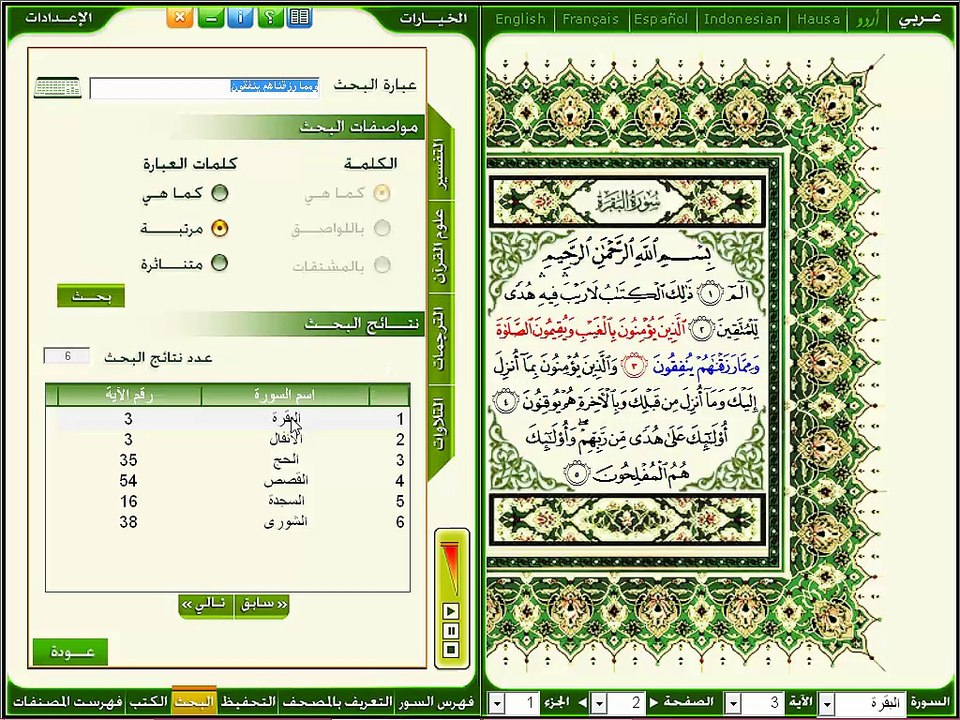 English Français Español Indonesian Hausa اُردو عربي
الخيارات
الإعدادات
عبارة البحث
ومما رزقناهم ينفقون
مواصفات البحث
الكلمة
كلمات العبارة
كما هي
كما هي
باللواصق
مرتبة
بالمشتقات
متناثرة
بحث
نتائج البحث
عدد نتائج البحث 6
اسم السورة رقم الآية
1 البقرة 3
2 الأنفال 3
3 الحج 35
4 القصص 54
5 السجدة 16
6 الشورى 38
« سابق
تالي »
عودة
التفسير
علوم القرآن
الترجمات
التلاوات
سُورَةُ البَقَرَةِ
بِسْمِ اللَّهِ الرَّحْمَٰنِ الرَّحِيمِ
الٓمٓ ١ ذَٰلِكَ الْكِتَابُ لَا رَيْبَ فِيهِ هُدًى
لِّلْمُتَّقِينَ ٢ الَّذِينَ يُؤْمِنُونَ بِالْغَيْبِ وَيُقِيمُونَ الصَّلَوٰةَ
وَمِمَّا رَزَقْنَٰهُمْ يُنفِقُونَ ٣ وَالَّذِينَ يُؤْمِنُونَ بِمَا أُنزِلَ
إِلَيْكَ وَمَا أُنزِلَ مِن قَبْلِكَ وَبِالْآخِرَةِ هُمْ يُوقِنُونَ ٤
أُو۟لَٰٓئِكَ عَلَىٰ هُدًى مِّن رَّبِّهِمْ ۖ وَأُو۟لَٰٓئِكَ
هُمُ الْمُفْلِحُونَ ٥
السورة البقرة الآية 3 الصفحة 2 الجزء 1
فهرس السور التعريف بالمصحف التحفيظ البحث الكتب فهرست المصنفات